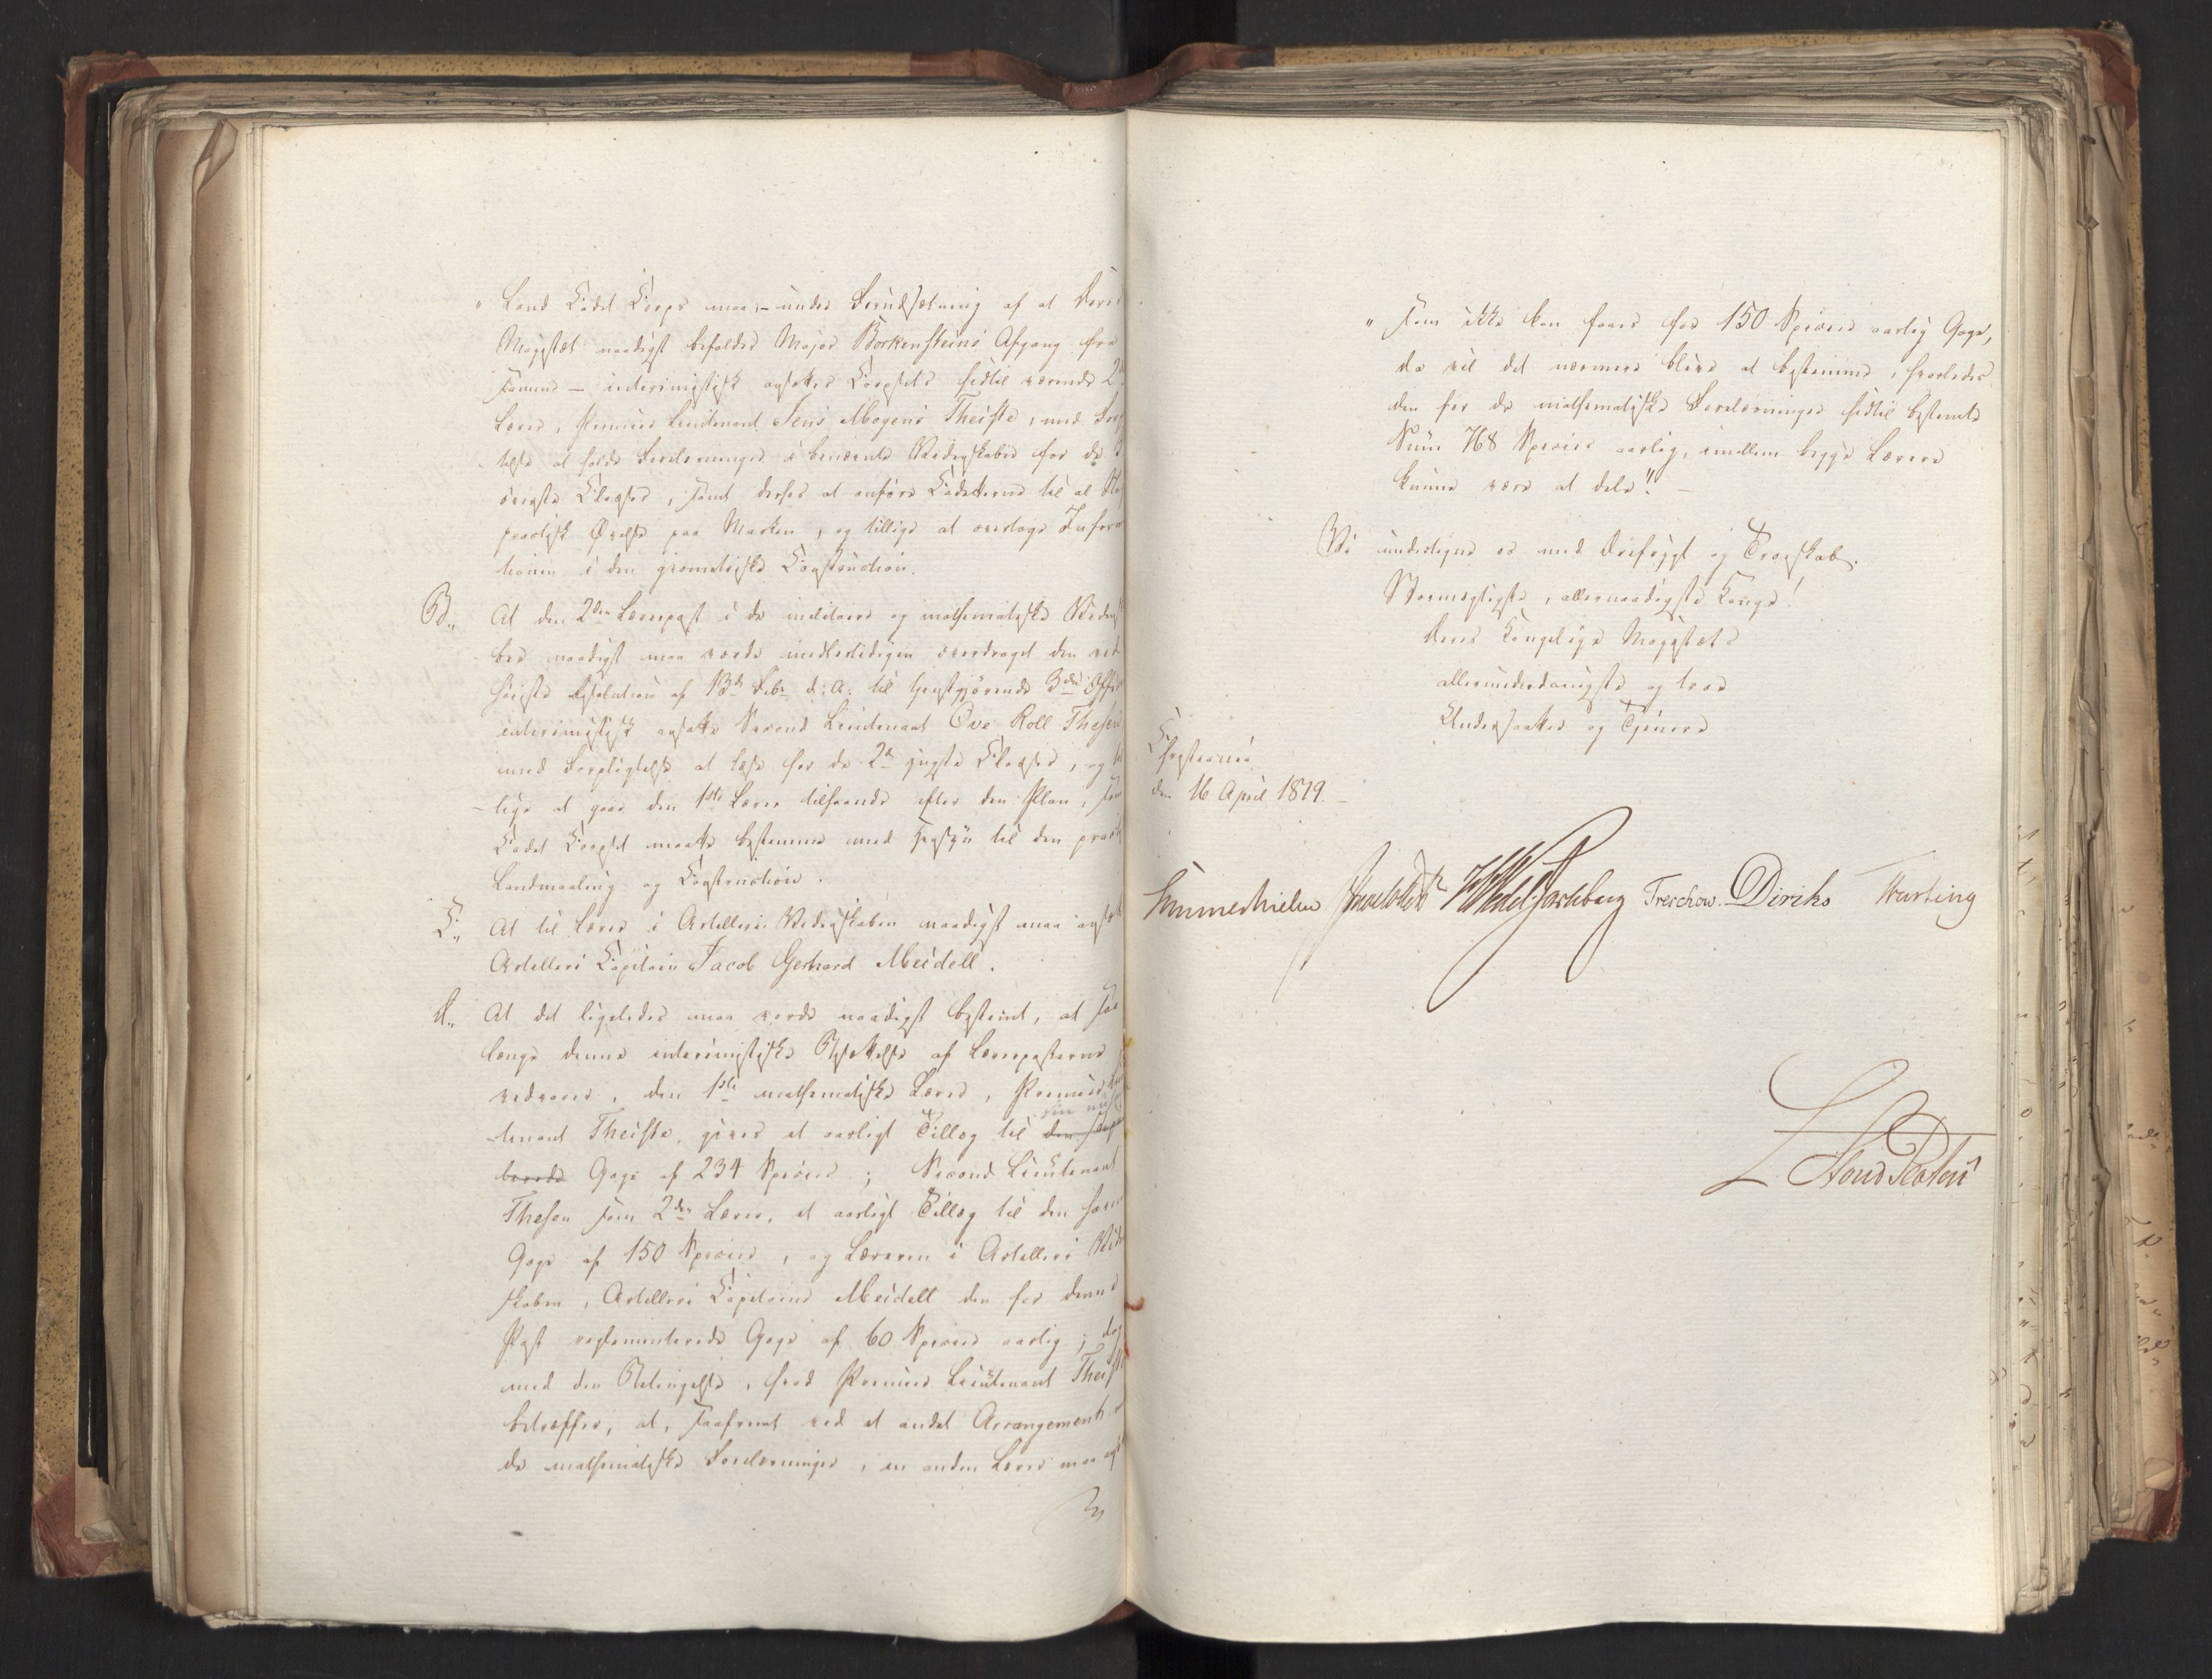 " Land Cadet Corps maa, – under Forudsætning af at Deres
Majestæt naadigst befaler Major Borkensteins Afgang fra
samme – interimistisk ansættes Corpsets hidtil værende 2
Lærer, Premier Lieutenant Jens Mogens Theiste, med For
telse at holde Forelæsninger i benævnte Videnskaber for de
øverste Classer, samt derhos at anføre Cadetterne til al
practisk Øvelse paa Marken, og tillige at overtage Informa
tionen i den geometriske Construction.
B., At den 2den Lærerpost i de militaire og mathematiske Vidensk
ber naadigst maa vorde midlertidigen overdraget den ved
høieste Resolution af 13de Febr d: A: til tjenstgjørende 3die Offic
interimistisk ansatte Second Lieutenant Ove Roll Thesen
med Forpligtelse at læse for de 2de yngste Classer, og til
lige at gaae den 1ste Lærer tilhaande efter den Plan, som
Cadet Corpset maatte bestemme med Hensyn til den pract
Landmaaling og Construction.
C., At til Lærer i Artilleri Videnskaben naadigst maa ansæt
Artilleri Capitain Jacob Gerhard Meidell.
D., At det ligeledes maa vorde naadigst bestemt, at saa
længe denne interimistiske Besættelse af Lærerposterne
vedvarer, den 1ste mathematiske Lærer, Premier
tenant Theiste, gives et aarligt Tillæg til den
havende Gage af 234 Speciesd; Second Lieutenant
Thesen som 2den Lærer, et aarligt Tillæg til den
Gage af 150 Speciesd, og Læreren i Artilleri Vide
skaben, Artilleri Capitaine Meidell den for denne
Post reglementerede Gage af 60 Speciesd aarlig; dog
med den Betingelse, hvad Premier Lieutenant Theist
betræffer, at, saafremt ved et andet Arrangement
de mathematiske Forelæsninger, en anden Lærer maa
" som ikke kan faaes for 150 Speciesd aarlig Gage,
da vil det nærmere blive at bestemme, hvorledes
den for de mathematiske Forelæsninger hidtil bestemte
Sum 768 Speciesd aarlig, imellem begge Lærere
kunne være at dele". –
Vi undertegne os med Ærefrygt og Troeskab.
Stormægtigste, allernaadigste Konge!
Deres Kongelige Majestæts
allerunderdanigste og troe
Undersaatter og Tjenere
Christiania
den 16 April 1819. –
Sommerhielm HWedel Jarlsberg Treschow. Diriks